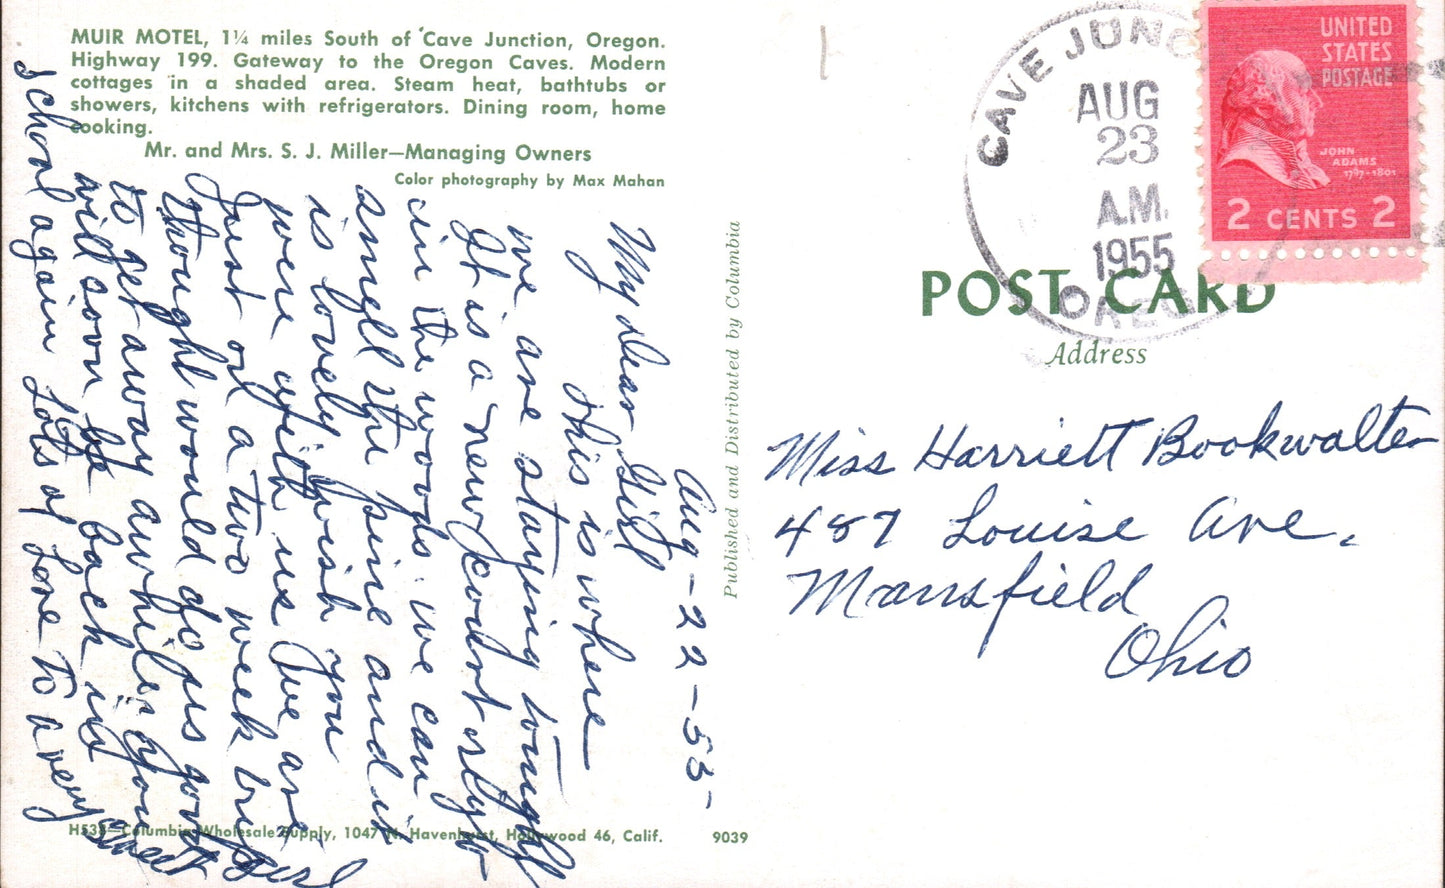 MUIR MOTEL, 1¼ miles South of Cave Junction, Oregon.
Highway 199. Gateway to the Oregon Caves. Modern
cottages in a shaded area. Steam heat, bathtubs or
showers, kitchens with refrigerators. Dining room, home
cooking.
Mr. and Mrs. S. J. Miller—Managing Owners
Color photography by Max Mahan
Aug-22-55-
My dear Girl
This is where
we are staying tonight
It is a new court
in the woods we can
smell the pine and it
is lovely wish you
were with us We are
Just on a two week trip
thought would do us good
to get away awhile. you
will soon be back in
school again Lots of Love to a very
sweet girl
H538—Columbia Wholesale Supply, 1047 N. Havenhurst, Hollywood 46, Calif. 9039
Published and Distributed by Columbia
CAVE JUNC
AUG
23
A.M.
1955
OREG
UNITED
STATES
POSTAGE
JOHN
ADAMS
1797-1801
2 CENTS 2
POST CARD
Address
Miss Harriett Bookwalter
487 Louise Ave.
Mansfield
Ohio